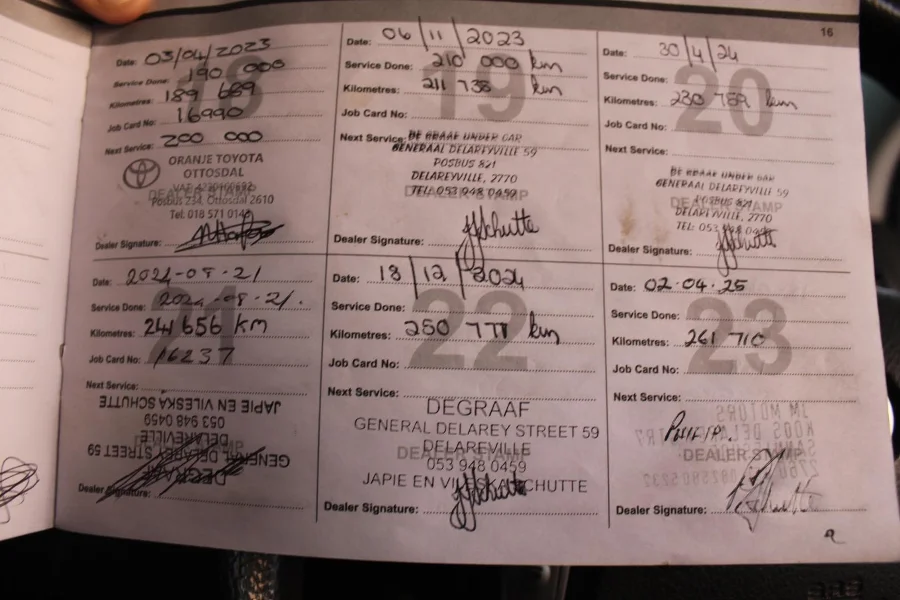 16
18
Date: 03/04/2023
Service Done: 190 000
Kilometres: 189 689
Job Card No: 16990
Next Service: 200 000
ORANJE TOYOTA
OTTOSDAL
Posbus 234, Ottosdal 2610
Tel: 018 571 0143
DEALER STAMP
Dealer Signature:
19
Date: 06/11/2023
Service Done: 210 000 km
Kilometres: 211 738 km
Job Card No:
Next Service:
DE GRAAF UNDER CAR
GENERAAL DELAREYVILLE 59
POSBUS 821
DELAREYVILLE, 2770
TEL: 053 948 0459
DEALER STAMP
Dealer Signature: JJSchutte
20
Date: 30/4/24
Service Done:
Kilometres: 230 759 km
Job Card No:
Next Service:
DE GRAAF UNDER CAR
GENERAAL DELAREYVILLE 59
POSBUS 821
DELAREYVILLE, 2770
TEL: 053 948 0459
DEALER STAMP
Dealer Signature: JJSchutte
21
Date: 2024-08-21
Service Done: 2024-08-21.
Kilometres: 241 656 km
Job Card No: 16237
Next Service:
DEGRAAF
GENERAL DELAREY STREET 59
DELAREVILLE
053 948 0459
JAPIE EN VILESKA SCHUTTE
Dealer Signature:
22
Date: 18/12/2024
Service Done:
Kilometres: 250 771 km
Job Card No:
Next Service:
DEGRAAF
GENERAL DELAREY STREET 59
DELAREVILLE
DEALER STAMP
053 948 0459
JAPIE EN VILESKA SCHUTTE
Dealer Signature: JJSchutte
23
Date: 02.04.25
Service Done:
Kilometres: 261 710
Job Card No:
Next Service:
JM MOTORS
DEALER STAMP
Dealer Signature: